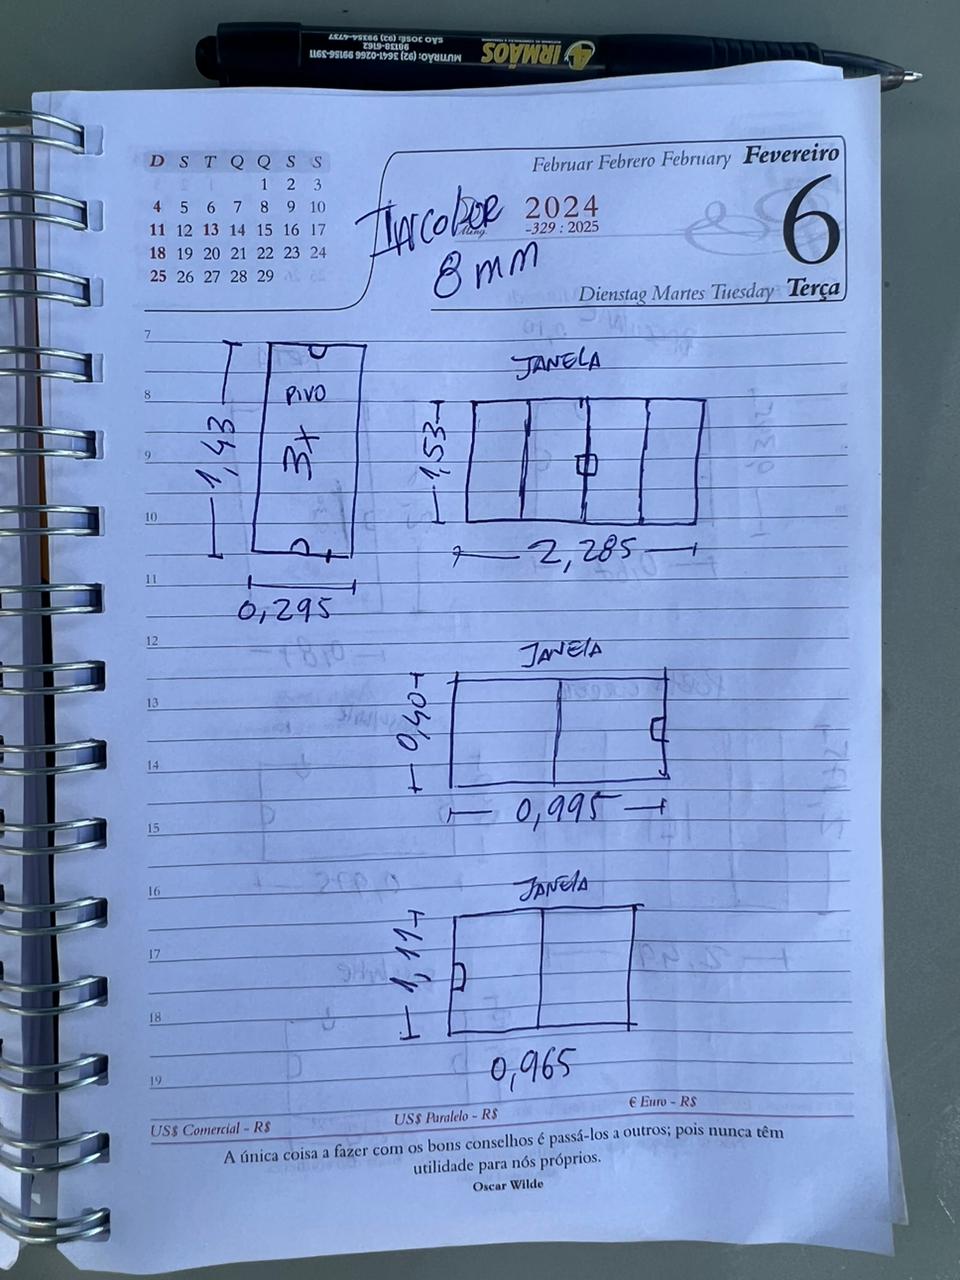 4 IRMÃOS
MUTIRÃO: (92) 3641-0266 99156-3911
98138-6162
SÃO JOSÉ: (92) 99354-4737
D S T Q Q S S
1 2 3
4 5 6 7 8 9 10
11 12 13 14 15 16 17
18 19 20 21 22 23 24
25 26 27 28 29
Februar Febrero February Fevereiro
2024
-329 : 2025
6
Dienstag Martes Tuesday Terça
Incolor
8mm
7
8
9
10
11
12
13
14
15
16
17
18
19
PIVO
3x
1,43
0,295
JANELA
1,53
2,285
JANELA
0,40
0,995
JANELA
1,11
0,965
US$ Comercial - R$ US$ Paralelo - R$ € Euro - R$
A única coisa a fazer com os bons conselhos é passá-los a outros; pois nunca têm
utilidade para nós próprios.
Oscar Wilde